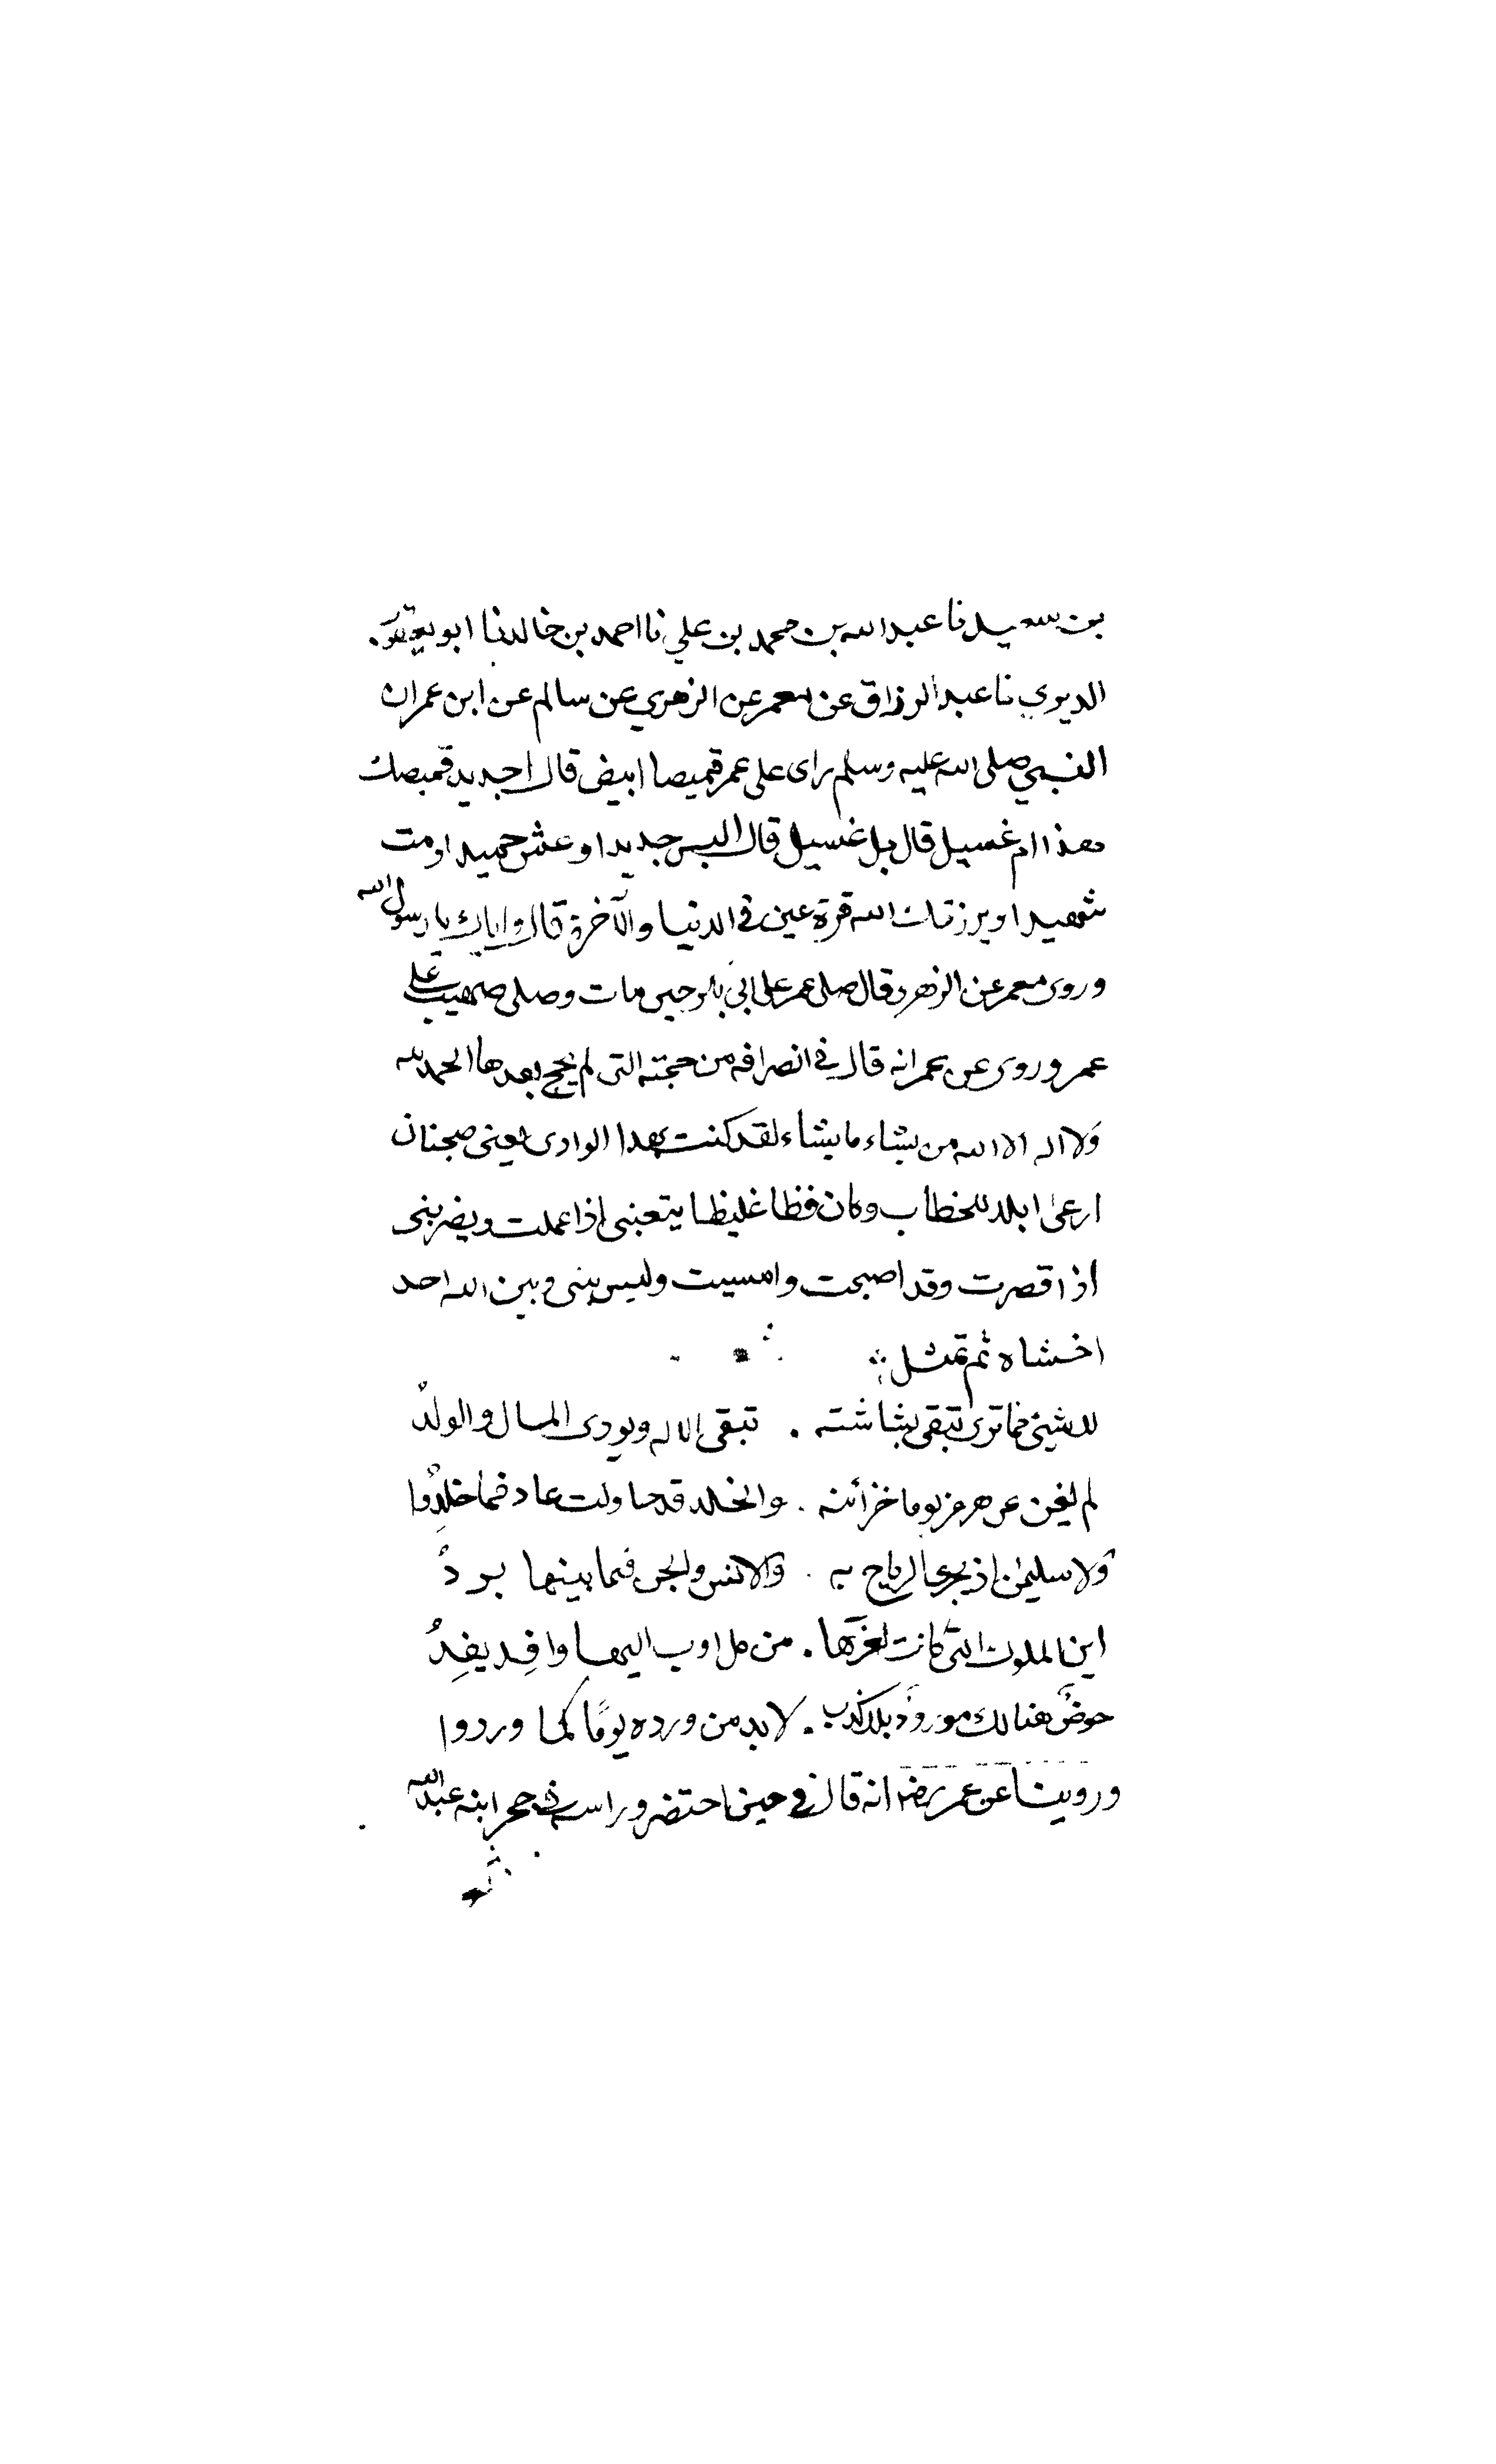 بن سعيد نا عبد الله بن محمد بن علي نا احمد بن خالد نا ابو يعقوب
الديري نا عبد الرزاق عن معمر عن الزهري عن سالم عن ابن عمر ان
النبي صلى الله عليه وسلم راى على عمر قميصا ابيض قال اجديد قميصك
هذا ام غسيل قال بل غسيل قال البس جديدا وعش حميدا ومت
شهيدا ويرزقك الله قرة عين في الدنيا والآخرة قال واياك يا رسول الله
وروى معمر عن الزهري قال صلى عمر على ابي بكر حين مات وصلى صهيب على
عمر وروى عن عمر انه قال في انصرافه من حجته التي لم يحج بعدها الحمد لله
ولا اله الا الله من يشاء ما يشاء لقد كنت بهذا الوادى يعنى ضجنان
ارعى ابلا للخطاب وكان فظا غليظا يتعبنى اذا عملت ويضربنى
اذا قصرت وقد اصبحت وامسيت وليس بينى وبين الله احد
اخشاه ثم تمثل
لا شيئ مما ترى تبقى بشاشته . تبقى الاله ويودى المال والولدُ
لم يغن عن هرمز يوما خزائنه . والخلد قد حاولت عاد فما خلدوا
ولا سليمن اذ يجرى الرياح به . والانس والجن فيما بينها بردُ
اين الملوك التي كانت لعزتها . من كل اوب اليها وافِد يفِدُ
حوضٌ هنالك مورودٌ بلا كذب . لا بد من ورده يومًا كما وردوا
وروينا عن عمر رضه انه قال في حين احتضر وراسه في حجر ابنه عبد الله